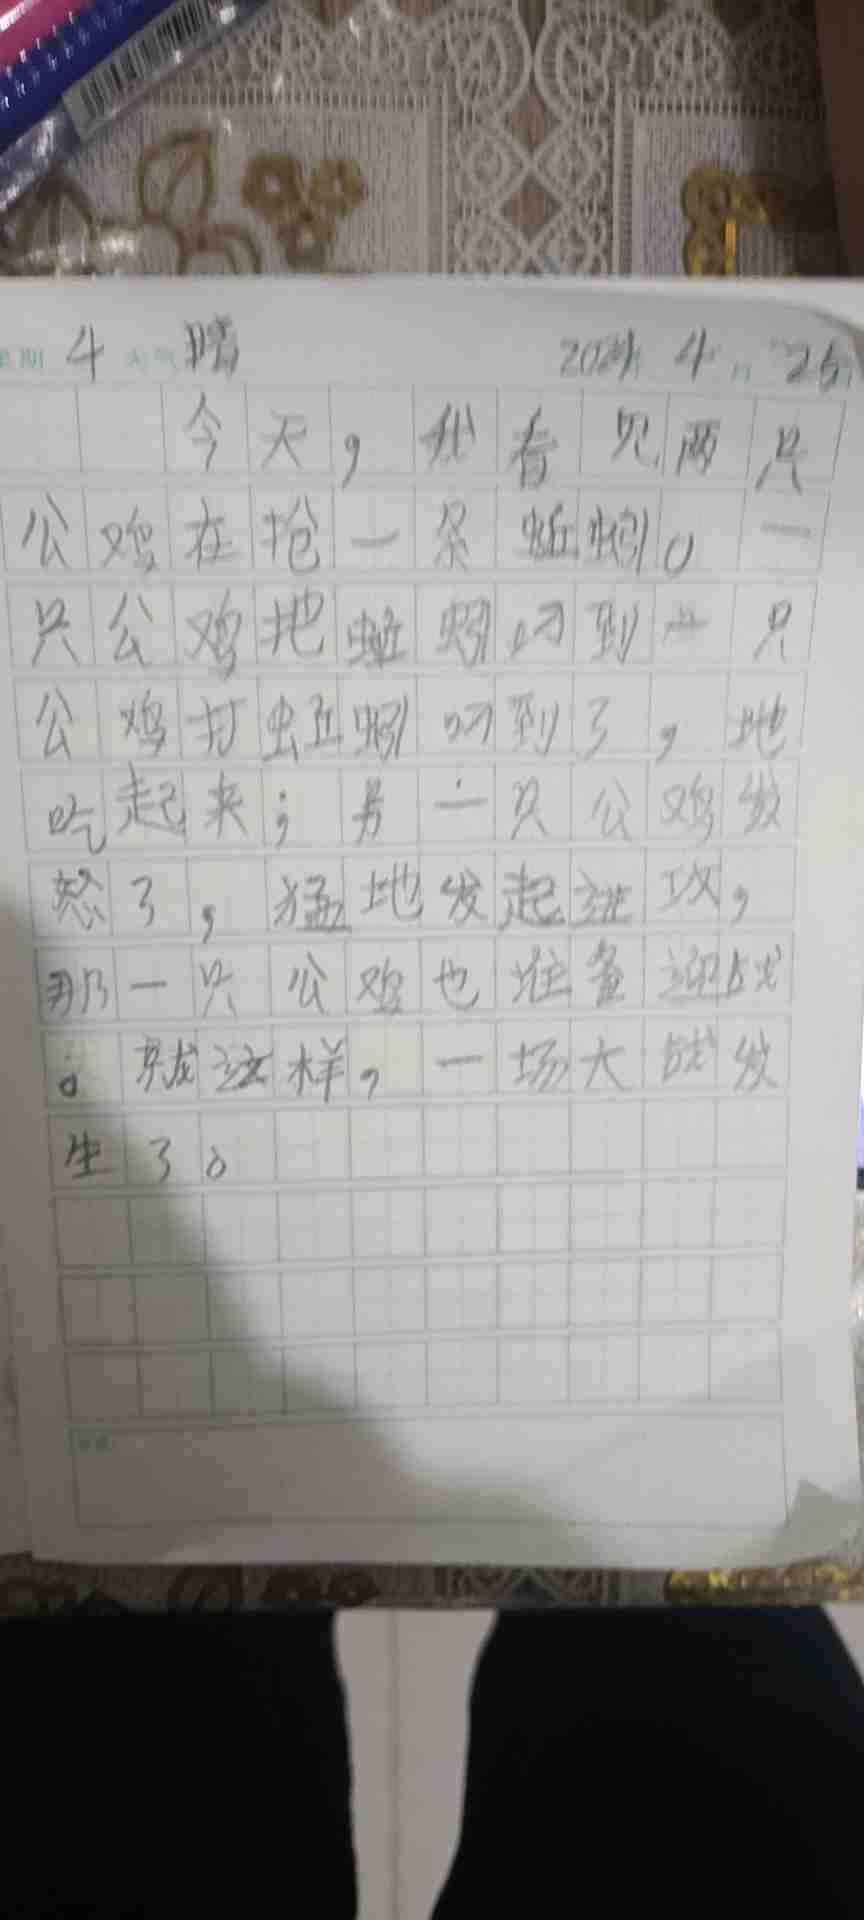 星期 4 天气 晴 2024年 4月 25日
今天，我看见两只
公鸡在抢一条蚯蚓。一
只公鸡把蚯蚓叼到一只
公鸡才蚯蚓叼到了，地
吃起来；另一只公鸡发
怒了，猛地发起进攻，
那一只公鸡也准备迎战
。就这样，一场大战发
生了。